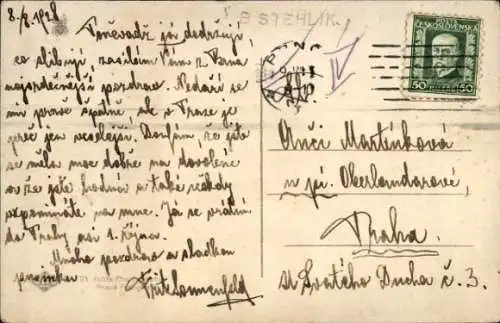 8./8. 1928
B STEHLÍK.
Poněvadž já dodržuji,
co slibuji, zasílám Vám z Brna
nejsrdečnější pozdrav. Nedaří se
mi právě špatně, ale v Praze je
přec jen veseleji. Doufám, že jste
se měla moc dobře na dovolené
a že jste hodná a také někdy
vzpomínáte na mne. Já se vrátím
do Prahy asi 1. října.
Mnoho pozdravů a sladkou
Fritz Sonnenfeld
POŠTA
ČESKOSLOVENSKÁ
50 50
Anči Martínková
u pí. Oberlandarové,
Praha.
ul. Svatého Ducha č. 3.